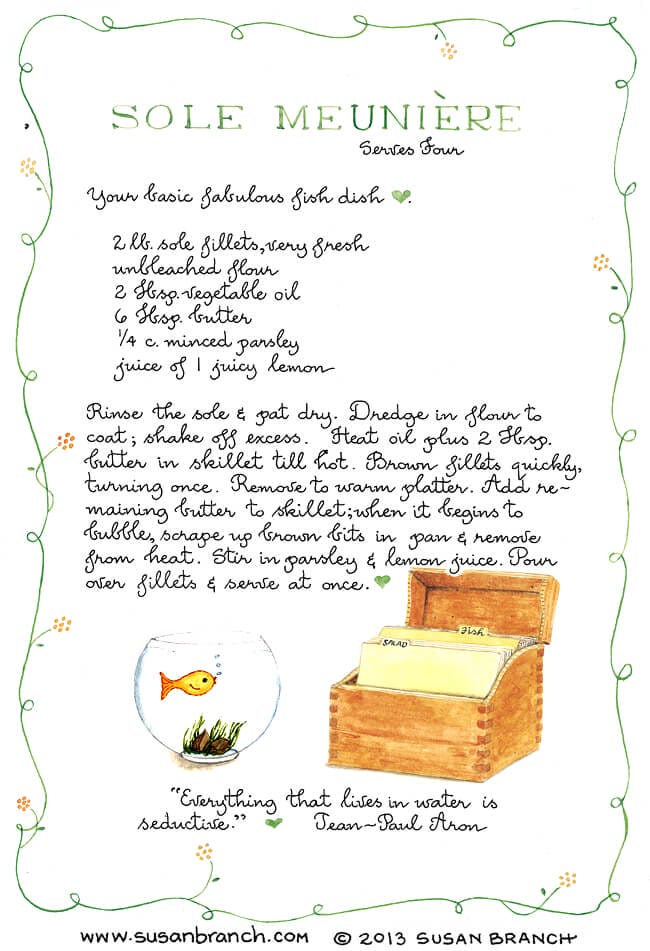 SOLE MEUNIÈRE
Serves Four
Your basic fabulous fish dish ♥.
2 lb. sole fillets, very fresh
unbleached flour
2 Tbsp. vegetable oil
6 Tbsp. butter
1/4 c. minced parsley
juice of 1 juicy lemon
Rinse the sole & pat dry. Dredge in flour to
coat; shake off excess. Heat oil plus 2 Tbsp.
butter in skillet till hot. Brown fillets quickly,
turning once. Remove to warm platter. Add re-
maining butter to skillet; when it begins to
bubble, scrape up brown bits in pan & remove
from heat. Stir in parsley & lemon juice. Pour
over fillets & serve at once. ♥
Fish
SALAD
"Everything that lives in water is
seductive." ♥ Jean-Paul Aron
www.susanbranch.com © 2013 SUSAN BRANCH